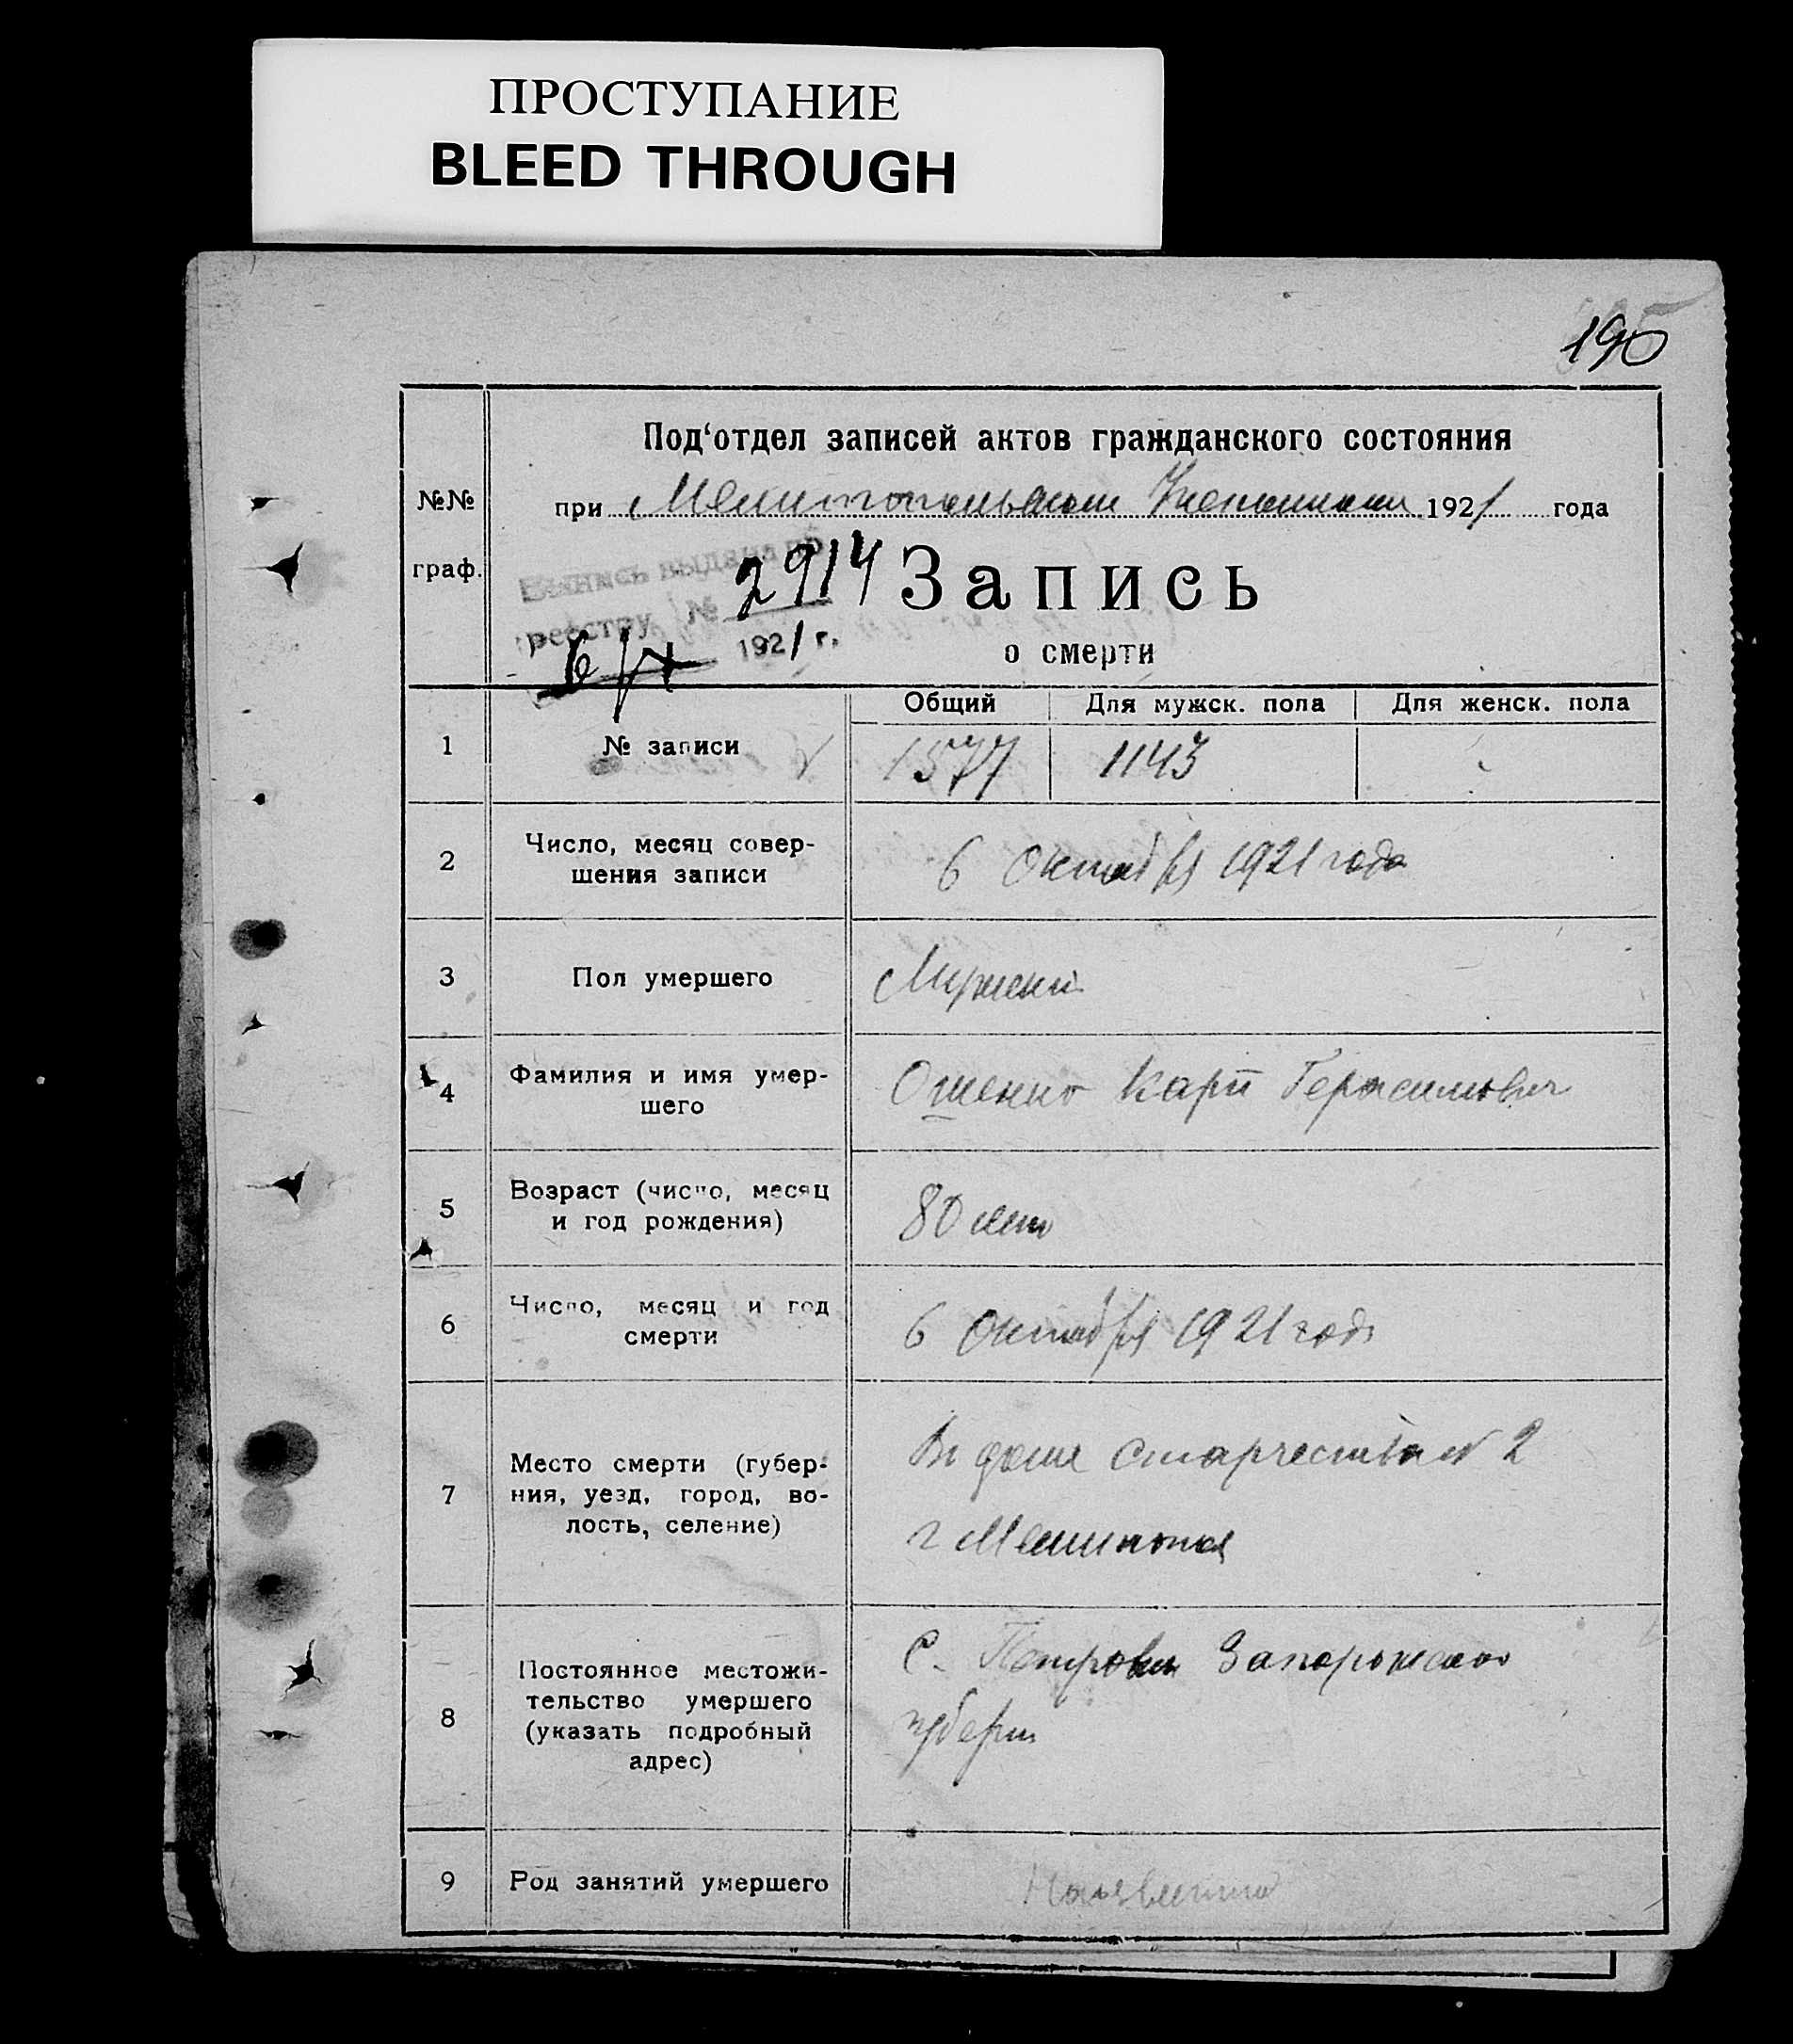 ПРОСТУПАНИЕ
BLEED THROUGH
195
Под‘отдел записей актов гражданского состояния
№№
граф.
при Мелитопольском 1921 года
Выпись выдана по
реестру № 2914
6/X 1921 г.
Запись
о смерти
Общий Для мужск. пола Для женск. пола
1 № записи 1577 1143
2 Число, месяц совер-
шения записи
6 Октября 1921 года
3 Пол умершего Мужской
4 Фамилия и имя умер-
шего
Ошенко Карп Герасимович
5 Возраст (число, месяц
и год рождения)
80 лет
6 Число, месяц и год
смерти
6 Октября 1921 года
7 Место смерти (губер-
ния, уезд, город, во-
лость, селение)
В доме старчества № 2
г Мелитополя
8 Постоянное местожи-
тельство умершего
(указать подробный
адрес)
С. Запорожской
губерн
9 Род занятий умершего